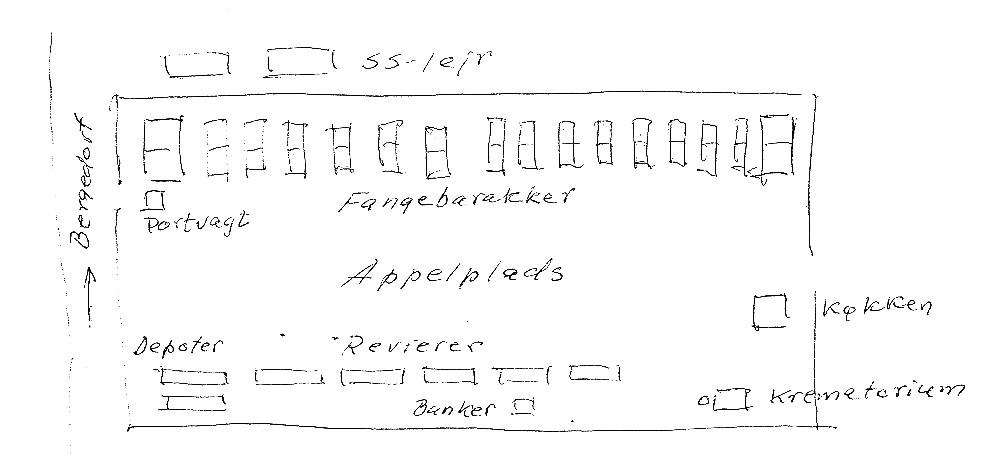 SS-lejr
Bergedorf
Fangebarakker
Portvagt
Appelplads
Køkken
Depoter
Revierer
Bunker
Krematorium